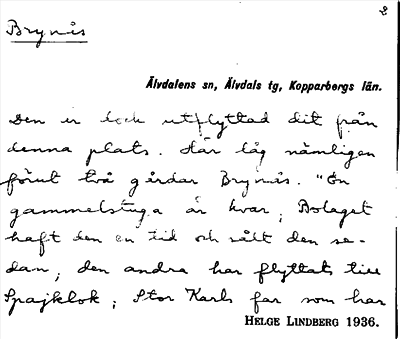 2
Brynis
Älvdalens sn, Älvdals tg, Kopparbergs län.
Den är dock utflyttad dit från
denna plats. Här låg nämligen
förut två gårdar Brynis. "En
gammelstuga är kvar; Bolaget
haft den en tid och sålt den se-
dan; den andra har flyttats till
Spajklok; Stor Karls far som har
HELGE LINDBERG 1936.